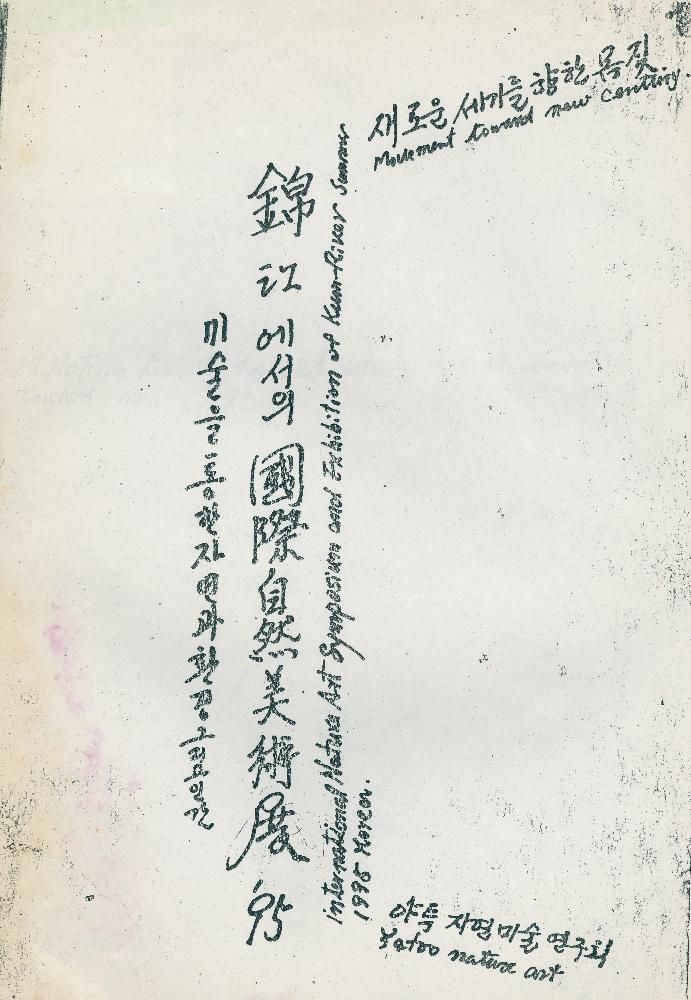 새로운 세기를 향한 몸짓
Movement toward new century.
錦江에서의 國際自然美術展 '95
international Nature Art Symposium and Exhibition of Keum-River Summer
1995 Korea.
미술을 통한 자연과 환경 그리고 인간
야투 자연미술연구회
Yatoo nature art